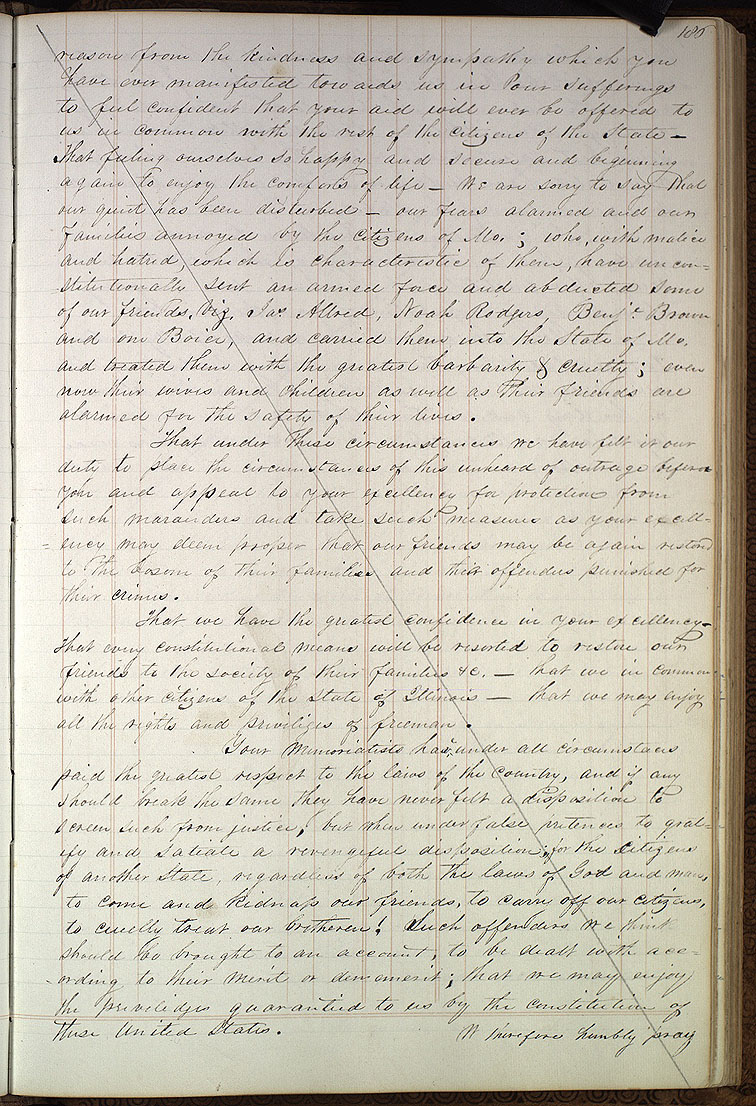 185
reason from the kindness and sympathy which you
have ever manifested towards us in our sufferings
to feel confident that your aid will ever be offered to
us in common with the rest of the citizens of the State —
That feeling ourselves so happy and secure and beginning
again to enjoy the comforts of life — We are sorry to say that
our quiet has been disturbed — our fears alarmed and our
families annoyed by the citizens of Mo. ; who, with malice
and hatred which is characteristic of them, have uncon=
=stitutionally sent an armed force and abducted some
of our friends, Viz. Jas. Allred, Noah Rodgers, Benjn. Brown
and one Boice, and carried them into the State of Mo.
and treated them with the greatest barbarity & cruelty ; even
now their wives and children as well as their friends are
alarmed for the safety of their lives.
That under these circumstances we have felt it our
duty to place the circumstances of this unheard of outrage before
you and appeal to your excellency for protection from
such marauders and take such measures as your excell=
=ency may deem proper that our friends may be again restored
to the bosom of their families and their offenders punished for
their crimes.
That we have the greatest confidence in your excellency
That every constitutional means will be resorted to restore our
friends to the society of their families &c. — that we in common
with other citizens of the State of Illinois — that we may enjoy
all the rights and priviliges of freeman.
Your memorialists have under all circumstances
paid the greatest respect to the laws of the country, and if any
should break the same they have never felt a disposition to
screen such from justice, but when under false pretences to grat=
ify and satiate a revengeful disposition, for the citizens
of another State, regardless of both the laws of God and man,
to come and kidnap our friends, to carry off our citizens,
to cruelly treat our bretheren! Such offenders we think
should be brought to an account, to be dealt with acc=
ording to their merit or demerit ; that we may enjoy
the priviledges guarantied to us by the constitution of
these United States.
We therefore humbly pray